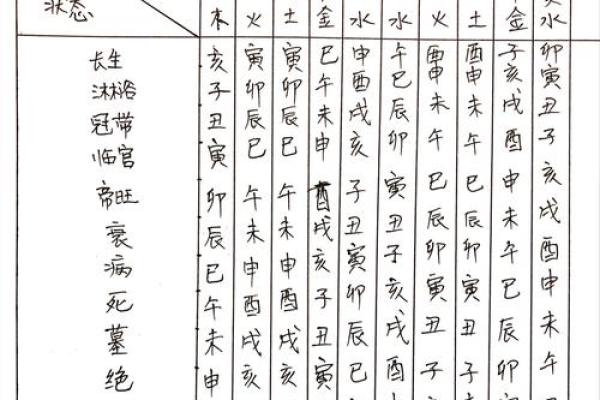 状态 木 火 土 金 水 水 火 土 金 水
长生 亥 寅 寅 巳 申 午 酉 酉 子 卯
淋浴 子 卯 卯 午 酉 巳 申 申 亥 寅
冠带 丑 辰 辰 未 戌 辰 未 未 戌 丑
临官 寅 巳 巳 申 亥 卯 午 午 酉 子
帝旺 卯 午 午 酉 子 寅 巳 巳 申 亥
衰 辰 未 未 戌 丑 丑 辰 辰 未 戌
病 巳 申 申 亥 寅 子 卯 卯 午 酉
死 午 酉 酉 子 卯 亥 寅 寅 巳 申
墓 未 戌 戌 丑 辰 戌 丑 丑 辰 未
绝 申 亥 亥 寅 巳 酉 子 子 卯 午